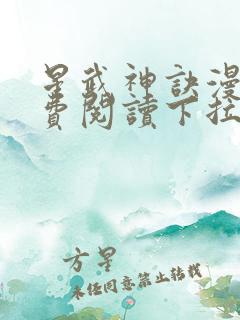 星武神訣漫
費閱讀下拉
方星
未经同意禁止转载